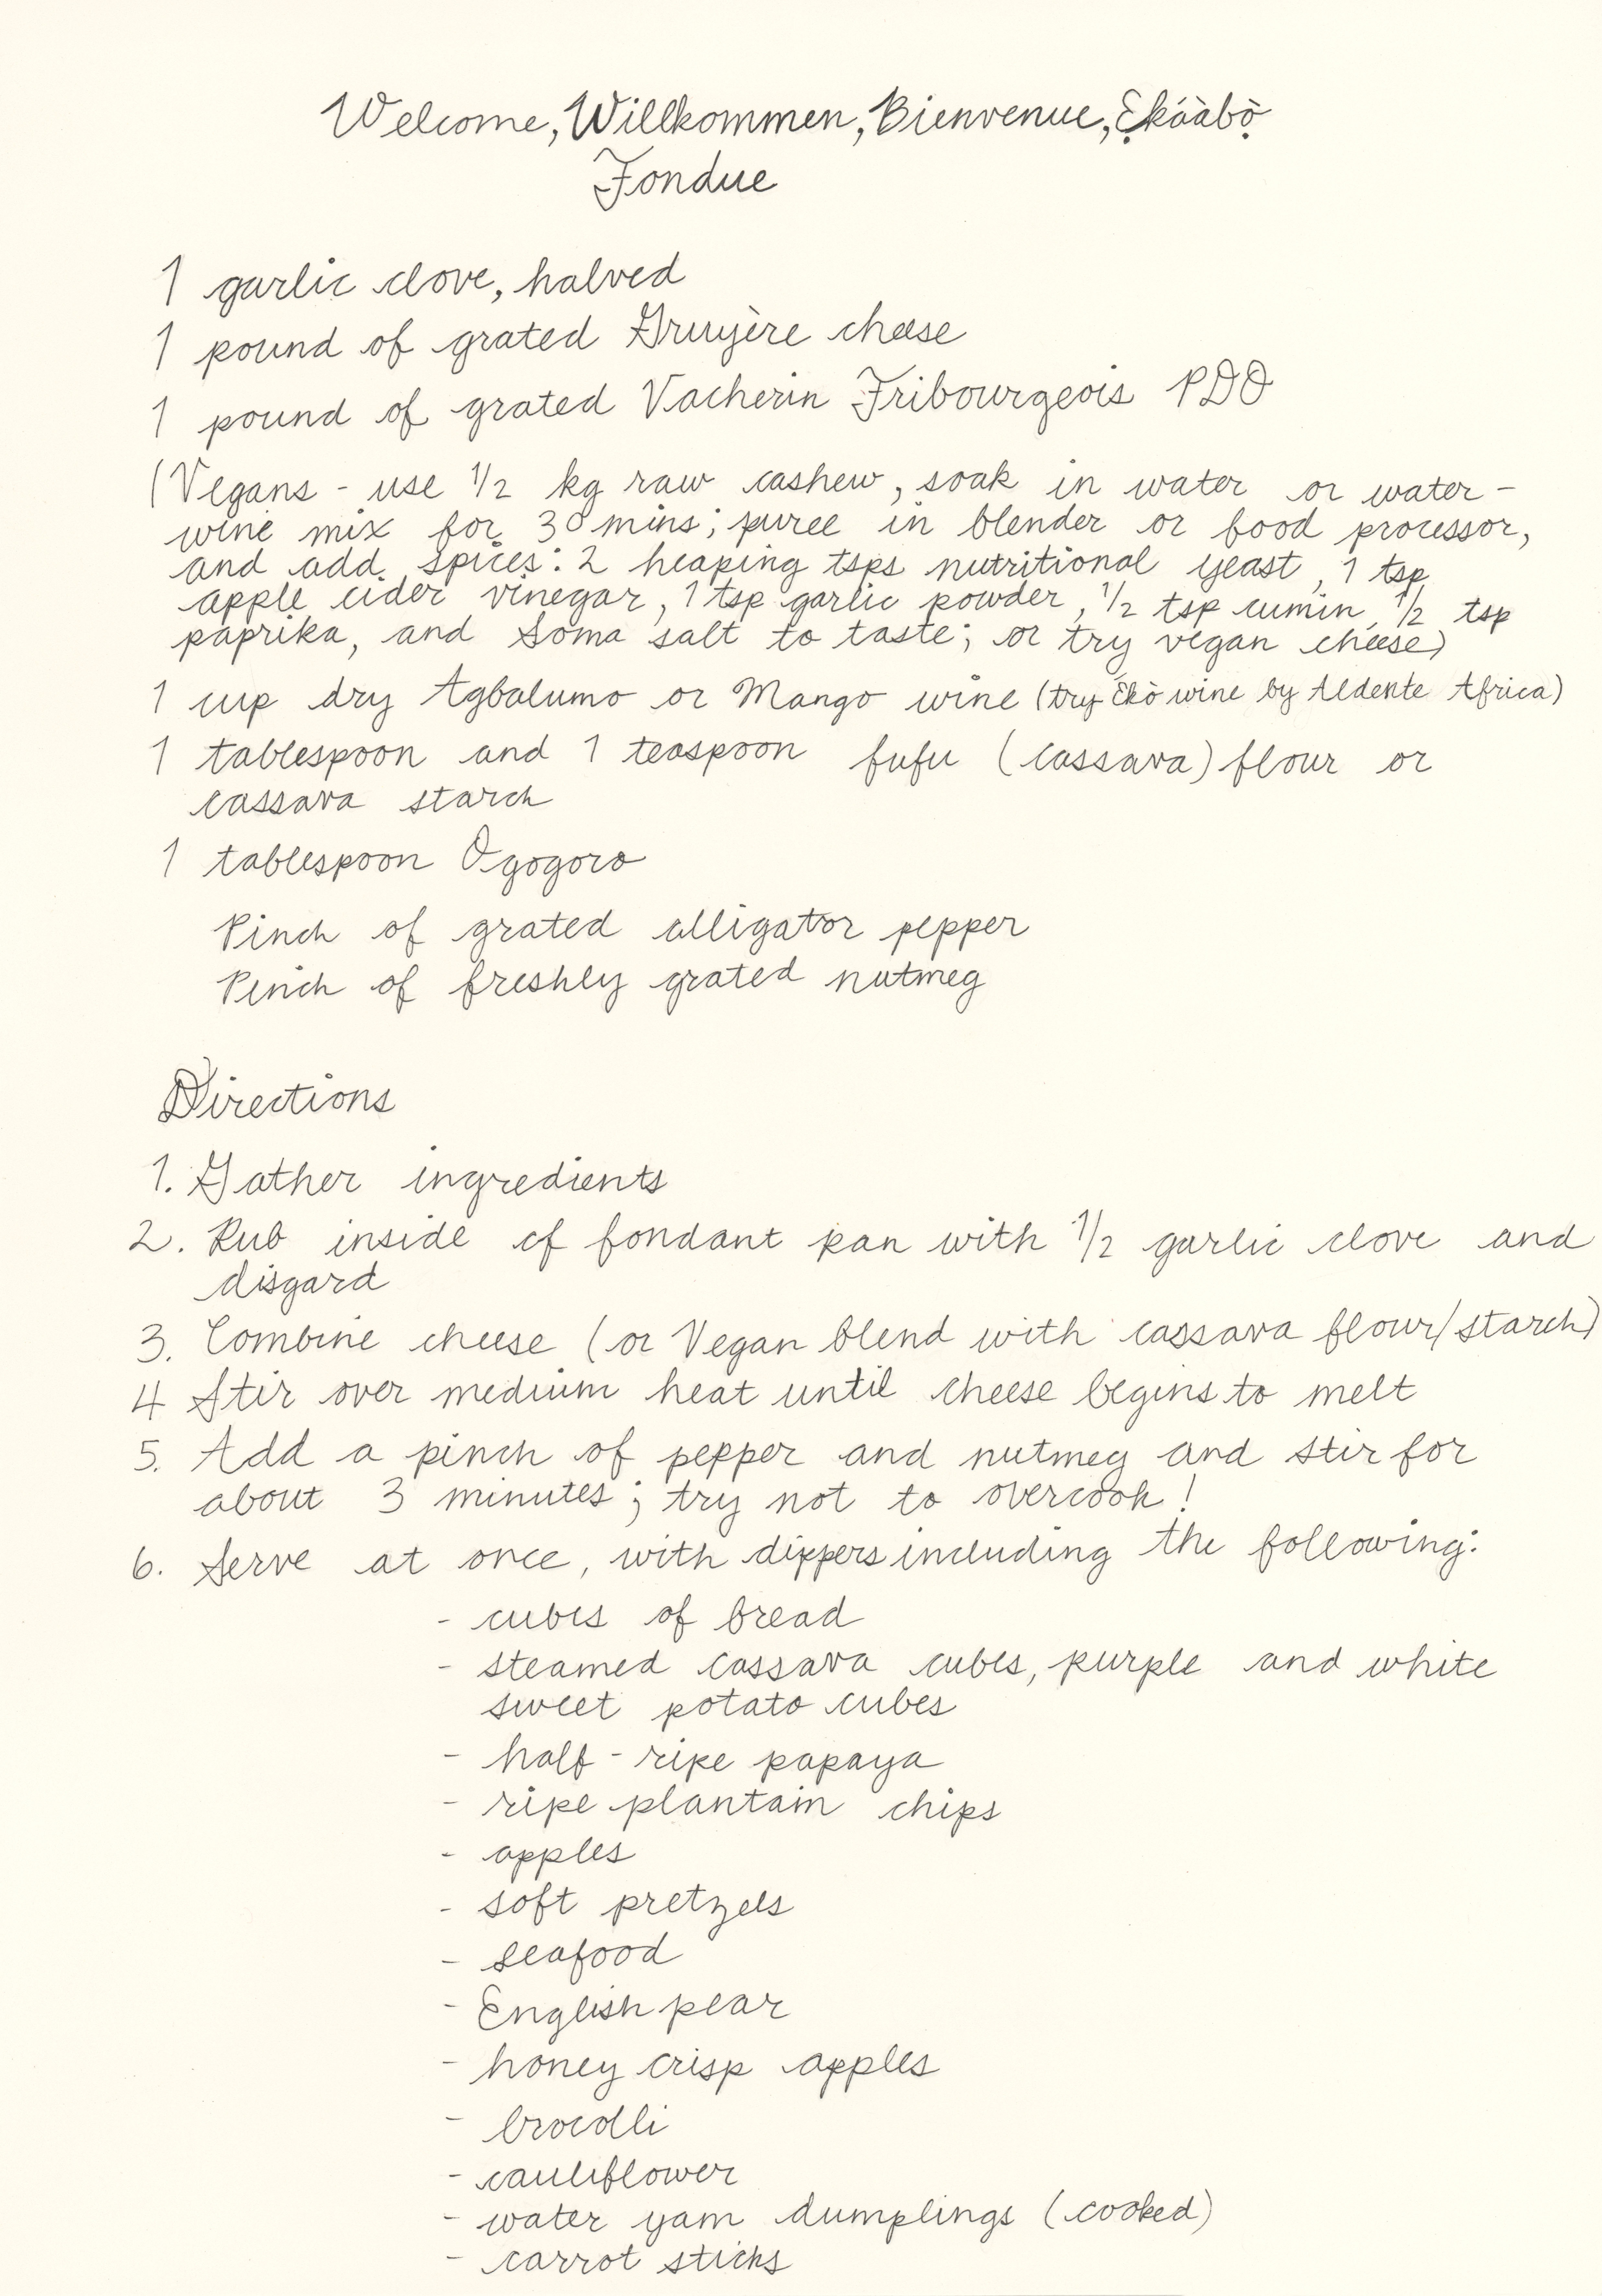 Welcome, Willkommen, Bienvenue, Ẹ̀káàbọ̀
Fondue
1 garlic clove, halved
1 pound of grated Gruyère cheese
1 pound of grated Vacherin Fribourgeois PDO
(Vegans - use 1/2 kg raw cashew, soak in water or water-
wine mix for 30 mins; puree in blender or food processor,
and add spices: 2 heaping tsps nutritional yeast, 1 tsp
apple cider vinegar, 1 tsp garlic powder, 1/2 tsp cumin, 1/2 tsp
paprika, and Soma salt to taste; or try vegan cheese)
1 cup dry Agbalumo or Mango wine (try Èkò wine by Aldente Africa)
1 tablespoon and 1 teaspoon fufu (cassava) flour or
cassava starch
1 tablespoon Ogogoro
Pinch of grated alligator pepper
Pinch of freshly grated nutmeg
Directions
1. Gather ingredients
2. Rub inside of fondant pan with 1/2 garlic clove and
disgard
3. Combine cheese (or Vegan blend with cassava flour/starch)
4 Stir over medium heat until cheese begins to melt
5. Add a pinch of pepper and nutmeg and stir for
about 3 minutes; try not to overcook!
6. Serve at once, with dippers including the following:
- cubes of bread
- steamed cassava cubes, purple and white
sweet potato cubes
- half-ripe papaya
- ripe plantain chips
- apples
- soft pretzels
- seafood
- English pear
- honey crisp apples
- brocolli
- cauliflower
- water yam dumplings (cooked)
- carrot sticks